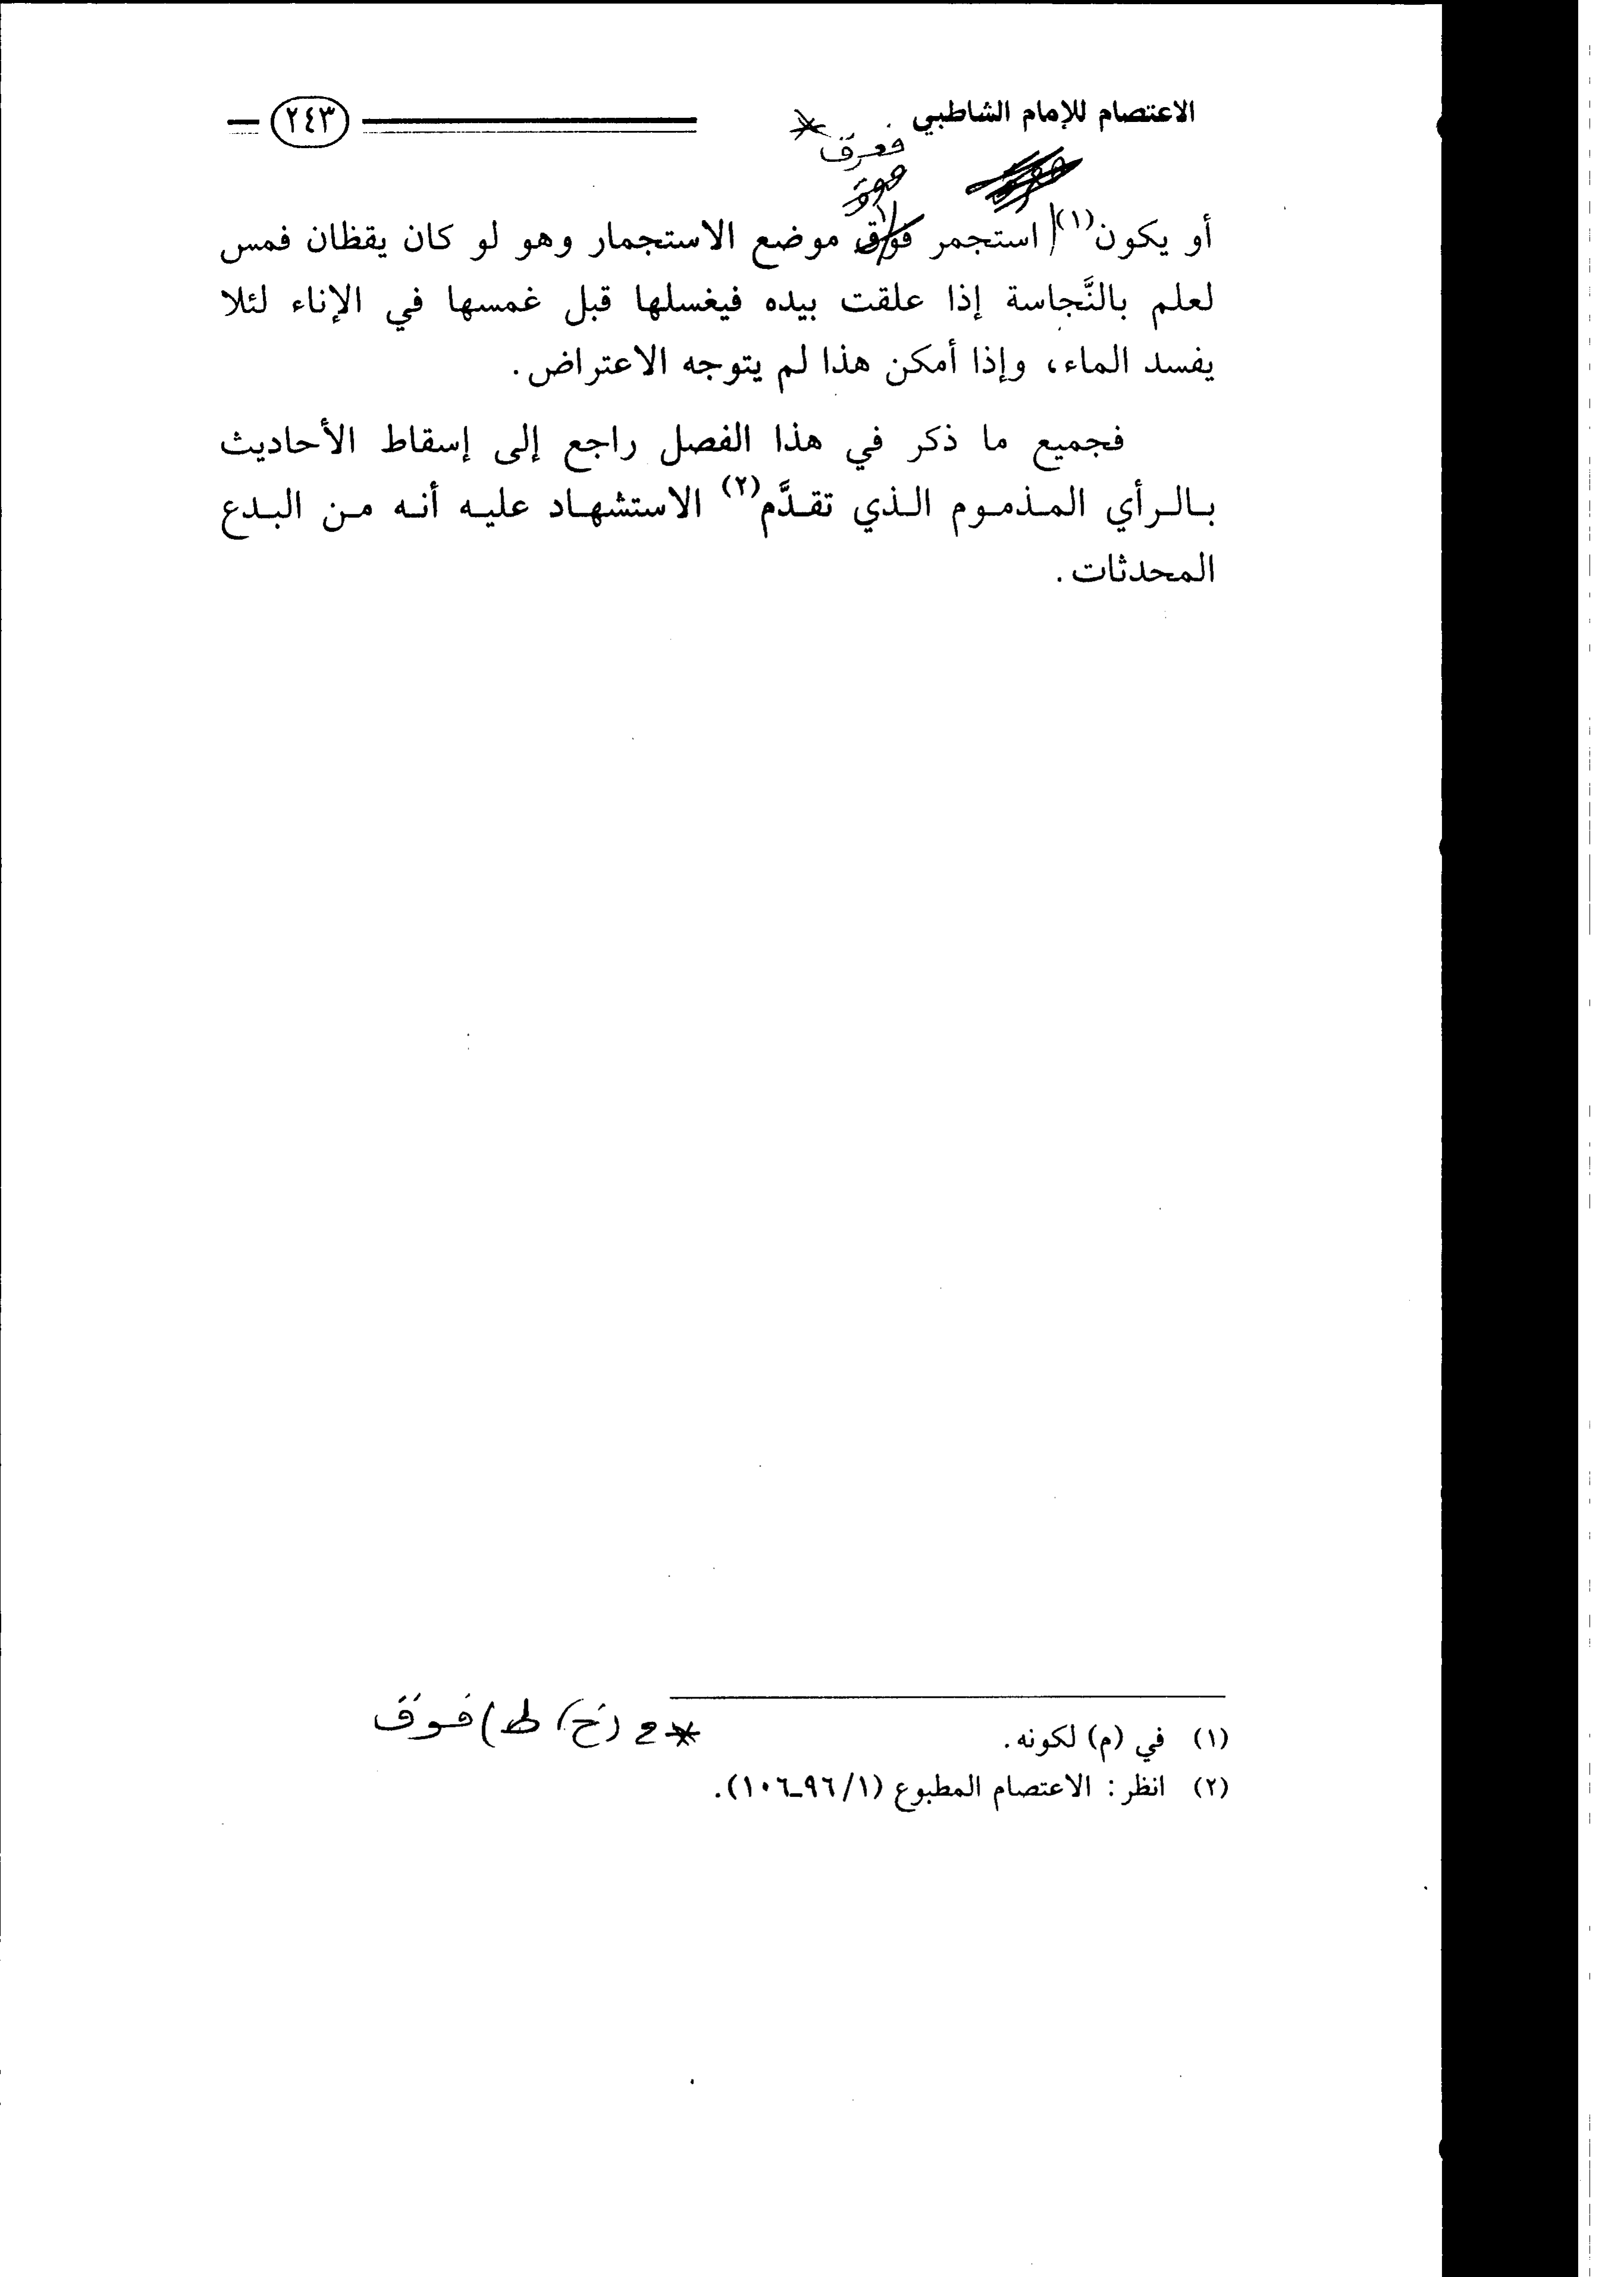 الاعتصام للإمام الشاطبي
٢٤٣
فعرق *
أو يكون(١) استجمر فوق موضع الاستجمار وهو لو كان يقظان فمس
لعلم بالنَّجاسة إذا علقت بيده فيغسلها قبل غمسها في الإناء لئلا
يفسد الماء، وإذا أمكن هذا لم يتوجه الاعتراض.
فجميع ما ذكر في هذا الفصل راجع إلى إسقاط الأحاديث
بالرأي المذموم الذي تقدَّم(٢) الاستشهاد عليه أنه من البدع
المحدثات.
(١) في (م) لكونه.
* (خ) ط) فوق
(٢) انظر: الاعتصام المطبوع (١/٩٦-١٠٦).